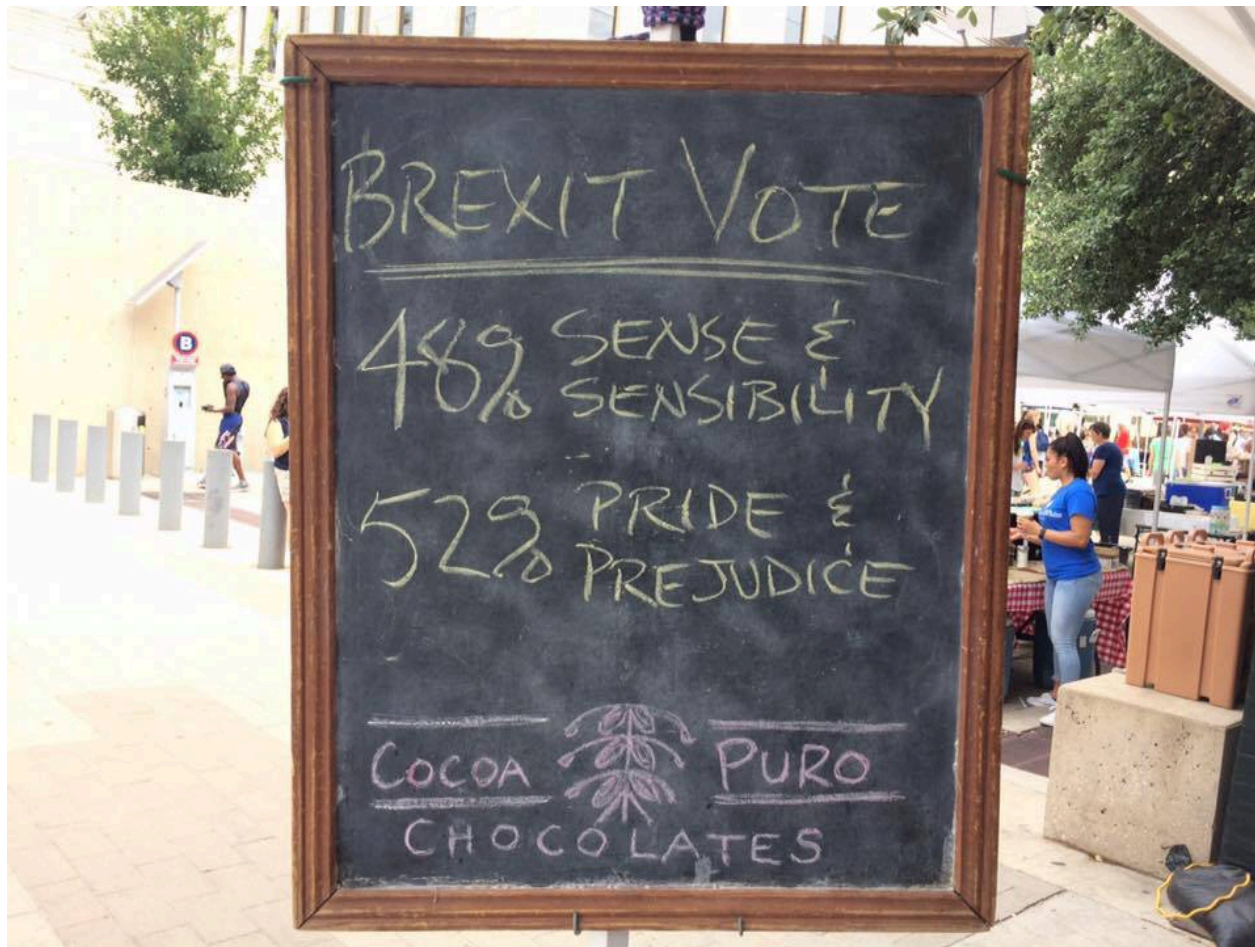 BREXIT VOTE
48% SENSE &
SENSIBILITY
52% PRIDE &
PREJUDICE
COCOA PURO
CHOCOLATES
B